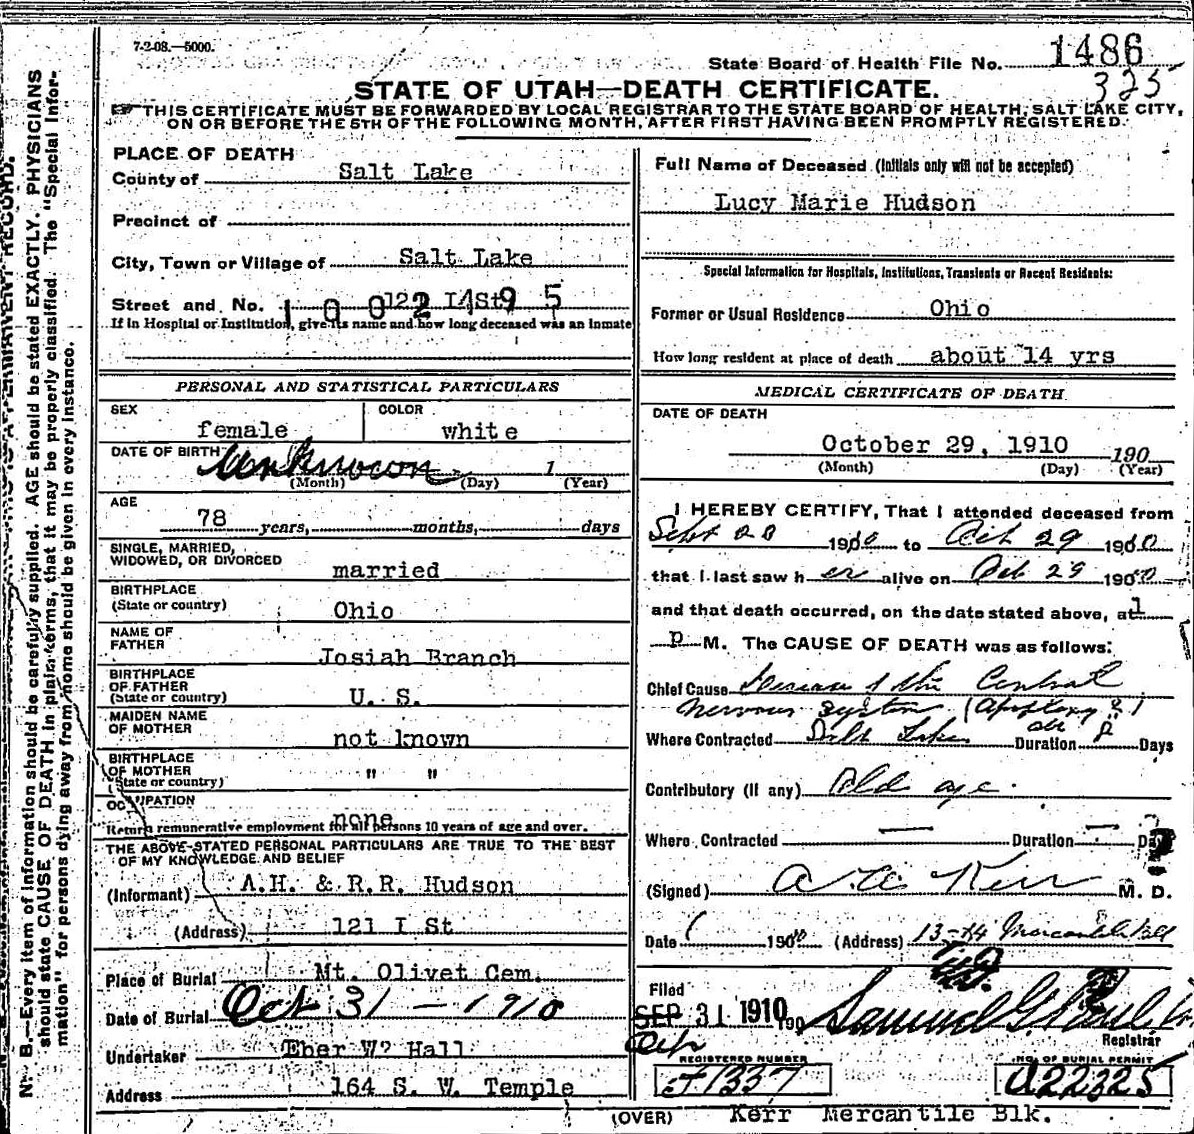 7-2-08.—5000.
State Board of Health File No. 1486
325
STATE OF UTAH—DEATH CERTIFICATE.
THIS CERTIFICATE MUST BE FORWARDED BY LOCAL REGISTRAR TO THE STATE BOARD OF HEALTH, SALT LAKE CITY,
ON OR BEFORE THE 5TH OF THE FOLLOWING MONTH, AFTER FIRST HAVING BEEN PROMPTLY REGISTERED.
PLACE OF DEATH
County of Salt Lake
Precinct of
City, Town or Village of Salt Lake
Street and No. 122 I St
1002195
If in Hospital or Institution, give its name and how long deceased was an inmate
Full Name of Deceased (Initials only will not be accepted)
Lucy Marie Hudson
Special Information for Hospitals, Institutions, Transients or Recent Residents:
Former or Usual Residence Ohio
How long resident at place of death about 14 yrs
PERSONAL AND STATISTICAL PARTICULARS
SEX female COLOR white
DATE OF BIRTH Unknown 1
(Month) (Day) (Year)
AGE
78 years, months, days
SINGLE, MARRIED,
WIDOWED, OR DIVORCED married
BIRTHPLACE
(State or country) Ohio
NAME OF
FATHER Josiah Branch
BIRTHPLACE
OF FATHER
(State or country) U. S.
MAIDEN NAME
OF MOTHER not known
BIRTHPLACE
OF MOTHER
(State or country) " "
OCCUPATION none
Return remunerative employment for all persons 10 years of age and over.
THE ABOVE-STATED PERSONAL PARTICULARS ARE TRUE TO THE BEST
OF MY KNOWLEDGE AND BELIEF
(Informant) A.H. & R.R. Hudson
(Address) 121 I St
Place of Burial Mt. Olivet Cem.
Date of Burial Oct 31 — 1910
Undertaker Eber W. Hall
Address 164 S. W. Temple
MEDICAL CERTIFICATE OF DEATH
DATE OF DEATH
October 29, 1910 190
(Month) (Day) (Year)
I HEREBY CERTIFY, That I attended deceased from
Sept 20 1910 to Oct 29 1910
that I last saw her alive on Oct 29 1910
and that death occurred, on the date stated above, at 1
P M. The CAUSE OF DEATH was as follows:
Chief Cause Disease of the Central
Nervous System (Apoplexy?)
Where Contracted Salt Lake Duration Days
Contributory (If any) Old age
Where Contracted — Duration — Days
(Signed) Kerr M. D.
Date 1910 (Address) 13-14 Mercantile Blk
Filed
SEP 31 1910 190
Samuel G. Paul
Registrar
REGISTERED NUMBER
1337
NO. OF BURIAL PERMIT
A22325
(OVER) Kerr Mercantile Blk.
N. B.—Every item of information should be carefully supplied. AGE should be stated EXACTLY. PHYSICIANS
should state CAUSE OF DEATH in plain terms, that it may be properly classified. The "Special Infor-
mation" for persons dying away from home should be given in every instance.